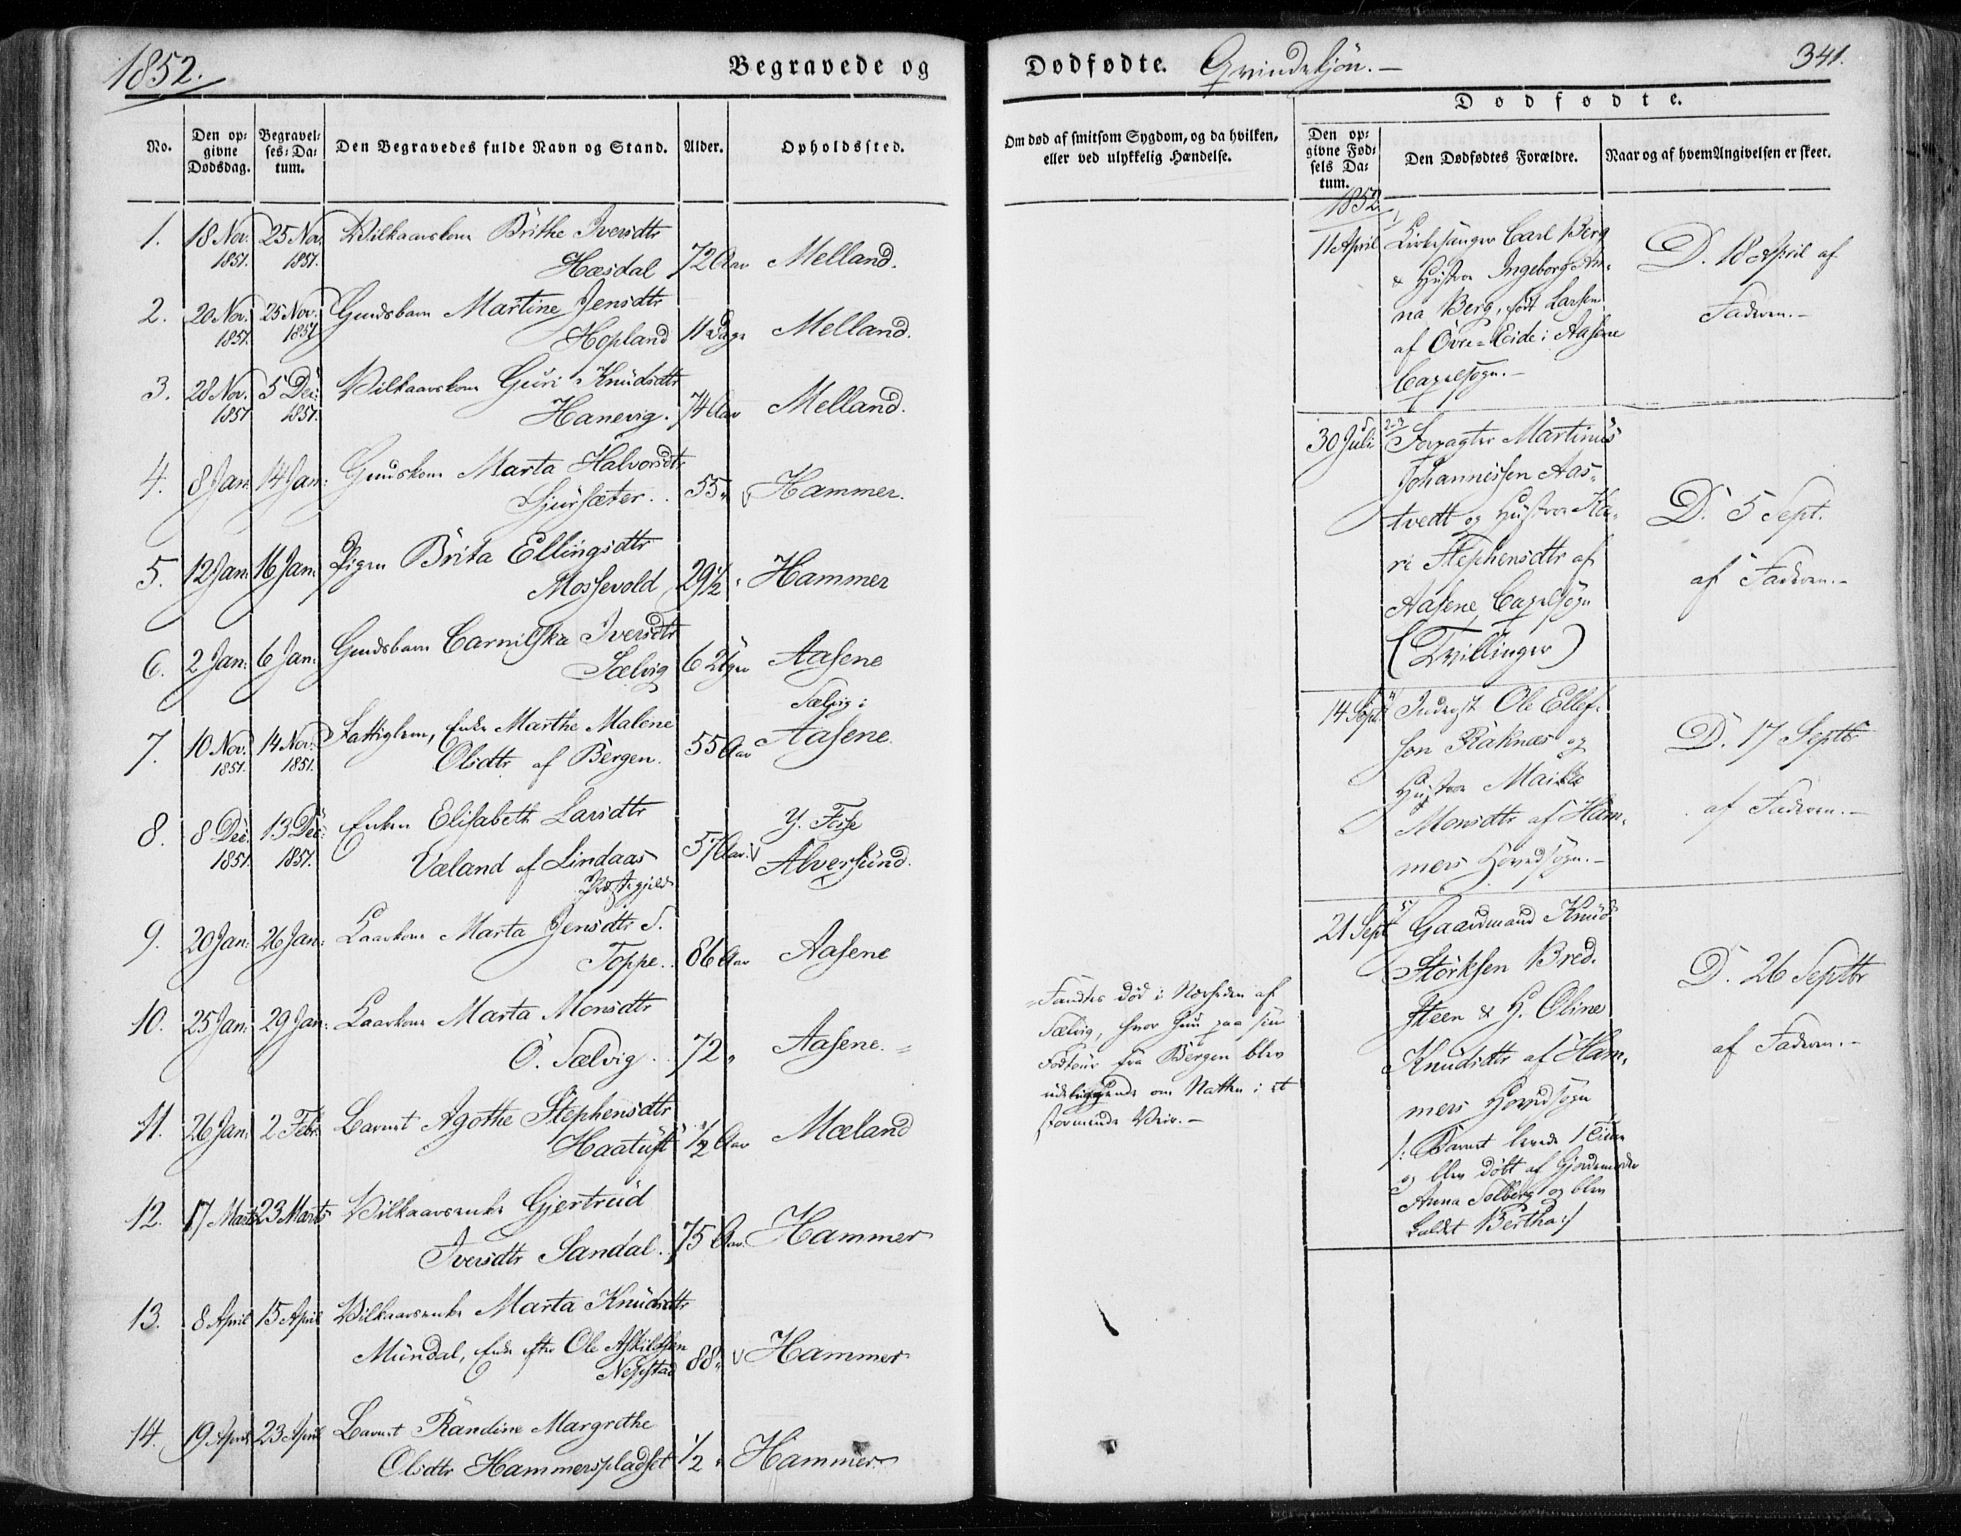 1852.
Begravede og
Dødfødte. Qvindekjön. —
341.
Dødfødte.
No.
Den opgivne Dødsdag.
Begravelses-Datum.
Den Begravedes fulde Navn og Stand.
Alder.
Opholdssted.
Om død af smitsom Sygdom, og da hvilken,
eller ved ulykkelig Hændelse.
Den opgivne Fødsels Datum.
Den Dødfødtes Forældre.
Naar og af hvem Angivelsen er skeet.
1. 18 Nov. 25 Nov. Vilkaarskone Brithe Iversdtr
1851. 1851. Hæsdal 72 Aar Melland.
2. 20 Nov. 25 Nov. Gmdsbarn Martine Jensdtr
1851. 1851 Hopland 11 Dage Melland.
3. 28 Nov. 5 Dec. Vilkaarskone Guri Knudsdtr
1851 1851. Hanevig. 74 Aar Melland.
4. 8 Jan: 14 Jan: Marta Halvorsdtr
Sjursæter. 55 " Hammer.
5. 12 Jan: 16 Jan: Pigen Brita Ellingsdtr
Mossevold 29½ " Hammer
6. 2 Jan: 6 Jan: Gmdsbarn Iversdtr
Sælvig 6 Uger Aasene
7. 10 Nov. 14 Nov. Fattiglem, Enke Marthe Malene Sælvig i
1851. 1851. Olsdtr af Bergen. 55 Aar Aasene.
8. 8 Dec. 13 Dec. Enken Elisabeth Larsdtr Y. Fosse
1851. 1851. Væland af Lindaas 57 Aar Alversund.
Præstegjeld
9. 20 Jan: 26 Jan: Kaarkone Marta Jensdtr
Toppe. 86 Aar Aasene
10. 25 Jan: 29 Jan: Kaarkone Marta Monsdtr
Ö. Sælvig. 72 " Aasene.
11. 26 Jan: 2 Febr. Barnet Agothe Stephensdtr
Haatuft ½ Aar Mæland
12. 17 Marts 23 Marts Vilkaarsenke Gjertrud
Iversdtr Sandal. 75 Aar. Hammer
13. 8 April 15 April Vilkaarsenke Marta Knudsdtr
Mundal, Enke efter Ole Askildsen 88 " Hammer
Nessestad
14. 19 April 23 April Barnet Randine Margrethe
Olsdtr Hammerspladset ½ " Hammer
Fandtes död i Nærheden af
Sælvig, hvor hun paa sin
Fodtour fra Bergen blev
udeliggende om Natten i et
stormende Veir. —
1852.
11 April 1) Kirkesanger Carl Berg
& Hustru Ingeborg An-
na Berg, født Larsen
af Övre-Eide i Aasene
Capelsogn. —
D. 18 April af
Faderen. —
30 Juli 2-3 Forpagter Martinus
Johannessen Aas-
tvedt og Hustru Ka-
ri Stephensdtr af
Aasene Capelsogn
(Tvillinger)
D. 5 Sept.
af Faderen. —
14 Sept. 4) Inderst Ole Ellef-
sen Raknæs og
Hustru
Monsdtr af Ham-
mers Hovedsogn. —
D. 17 Septbr
af Faderen. —
21 Sept 5) Gaardmand Knud
Störksen Bred-
steen & H. Oline
Knudsdtr af Ham-
mers Hovedsogn
/: Barnet levede 1 Time
og blev döbt af Gjordemoder
Anna Solberg og blev
kaldet Bertha :/
D. 26 Septbr
af Faderen. —